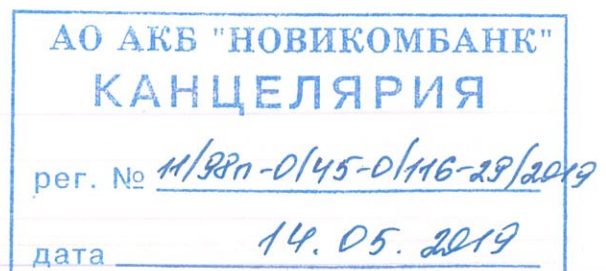 АО АКБ "НОВИКОМБАНК"
КАНЦЕЛЯРИЯ
рег. № 11/98п-0/45-0/116-29/2019
дата 14. 05. 2019